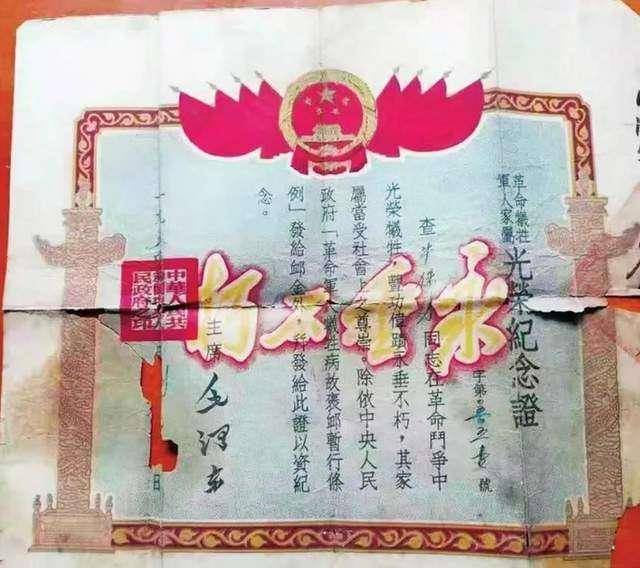 革命犧牲
軍人家屬
光榮紀念證
字第 號
查 同志在革命鬥爭中
光榮犧牲,豐功偉蹟永垂不朽,其家
屬當受社會上之尊崇。除依中央人民
政府「革命軍人犧牲病故褒卹暫行條
例」發給卹金外,并發給此證以資紀
念。
永垂不朽
主席
毛澤東
一九五 日
中華人民共
民政府之印